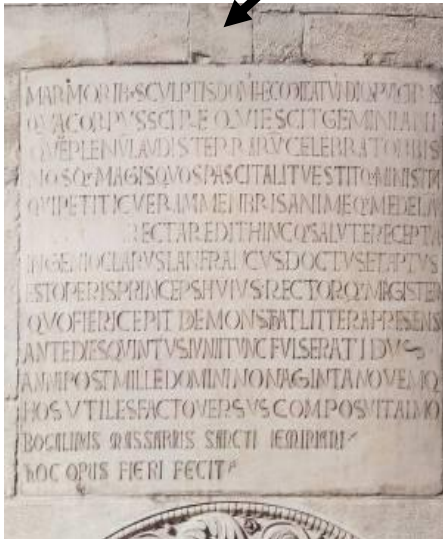 MARMORIB;SCVLPTISDOM;HEC MICAT VNDIQ;PVLCHRIS
QVA CORPVS SCI REQVIESCIT GEMINIANI
QVĒ PLENV̄ LAVDIS TERRARV̄ CELEBRAT ORBIS
NOSQ; MAGIS QVOS PASCIT ALIT VESTITQ; MINISTRI
QVI PETIT IC VERAM MENBRIS ANIMEQ; MEDELĀ
RECTA REDIT HINCQ; SALVTE RECEPTA
INGENIO CLARVS LANFRANCVS DOCTVS ET APTVS
EST OPERIS PRINCEPS HVIVS RECTORQ; MAGISTER
QVO FIERI CEPIT DEMONSTRAT LITTERA PRESENS
ANTE DIES QVINTVS IVNII TVNC FVLSERAT IDVS
ANNI POST MILLE DOMINI NONAGINTA NOVEMQ;
HOS VTILES FACTO VERSVS COMPOSVIT AIMO
BOCALINUS MASSARIUS SANCTI IEMINIANI
HOC OPUS FIERI FECIT